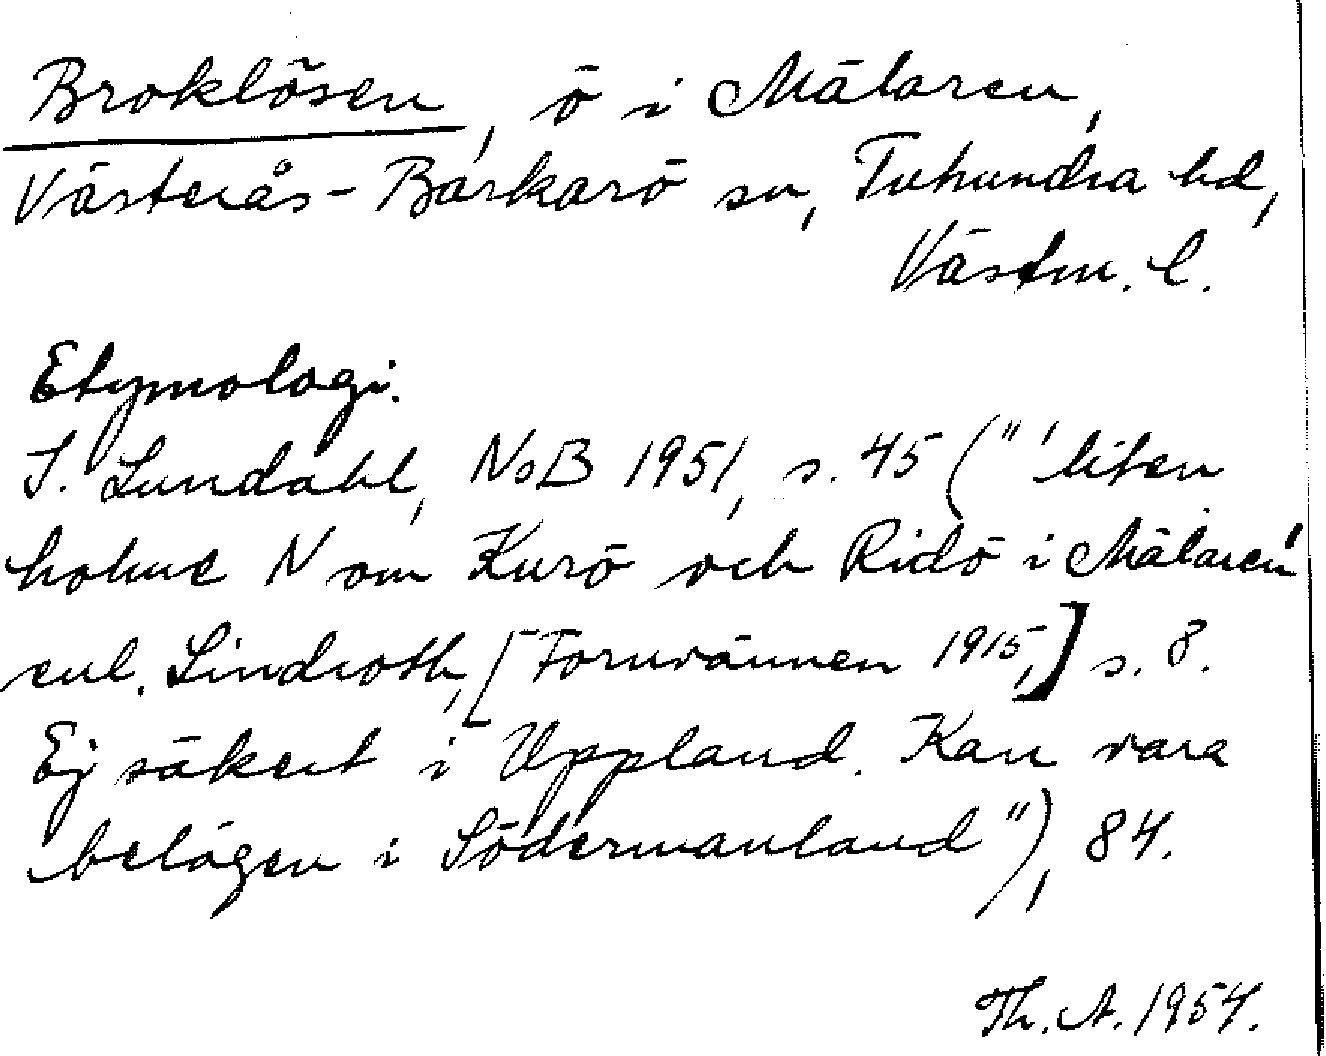 Broklösen, ö i Mälaren,
Västerås-Barkarö sn, Tuhundra hd,
Västm. l.
Etymologi.
I. Lundahl, NoB 1951, s. 45 (" 'liten
holme N om Kurö och Ridö i Mälaren'
enl. Lindroth, [Fornvännen 1915,] s. 8.
Ej säkert i Uppland. Kan vara
belägen i Södermanland"), 84.
Th. A. 1954.